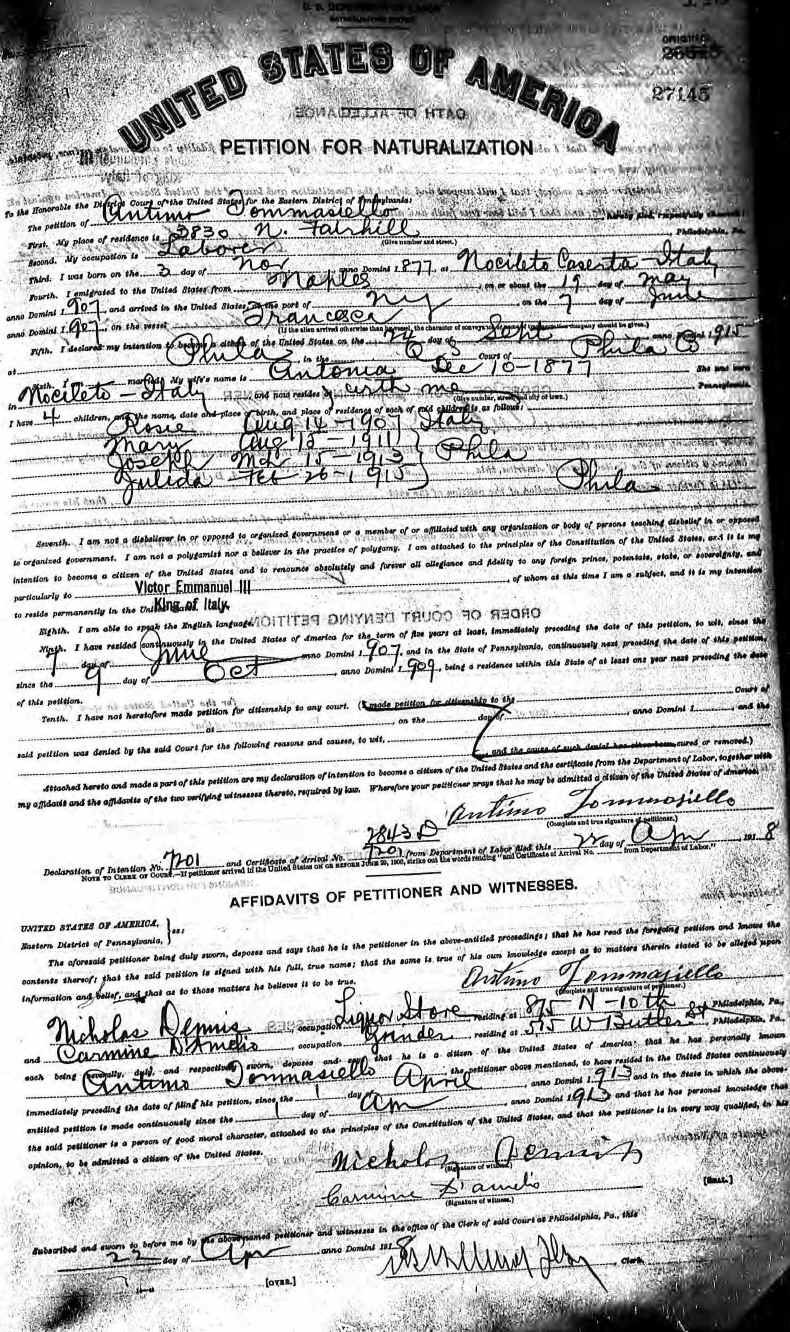 U. S. DEPARTMENT OF LABOR
NATURALIZATION SERVICE
ORIGINAL
27145
UNITED STATES OF AMERICA
OATH OF ALLEGIANCE
PETITION FOR NATURALIZATION
To the Honorable the District Court of the United States for the Eastern District of Pennsylvania:
The petition of Antimo Tommasiello hereby filed, respectfully showeth:
First. My place of residence is 3830 N. Fairhill Philadelphia, Pa.
(Give number and street.)
Second. My occupation is Laborer
Third. I was born on the 3 day of Nov anno Domini 1 877, at Nocileto Caserta - Italy
Fourth. I emigrated to the United States from Naples, on or about the 19 day of may
anno Domini 1 907, and arrived in the United States at the port of NY on the 7 day of June
anno Domini 1 907, on the vessel Francesca
(If the alien arrived otherwise than by vessel, the character of conveyance or name of transportation company should be given.)
Fifth. I declared my intention to become a citizen of the United States on the day of Sept anno Domini 1 915
at Phila in the Court of Phila Co
Sixth. I married. My wife's name is Antonia Dec 10-1877 She was born
in Nocileto - Italy and now resides with me Pennsylvania.
(Give number, street, and city of town.)
I have 4 children, and the name, date and place of birth, and place of residence of each of said children is as follows:
Rosie Aug 14-1907 Italy
Mary Aug 13-1911
Joseph Mch 15-1913 } Phila
Julida Feb 26-1915 Phila
Seventh. I am not a disbeliever in or opposed to organized government or a member of or affiliated with any organization or body of persons teaching disbelief in or opposed
to organized government. I am not a polygamist nor a believer in the practice of polygamy. I am attached to the principles of the Constitution of the United States, and it is my
intention to become a citizen of the United States and to renounce absolutely and forever all allegiance and fidelity to any foreign prince, potentate, state, or sovereignty, and
particularly to Victor Emmanuel III King of Italy, of whom at this time I am a subject, and it is my intention
to reside permanently in the United States.
ORDER OF COURT DENYING PETITION
Eighth. I am able to speak the English language.
Ninth. I have resided continuously in the United States of America for the term of five years at least, immediately preceding the date of this petition, to wit, since the
7 day of June anno Domini 1 907, and in the State of Pennsylvania, continuously next preceding the date of this petition,
since the 9 day of Oct, anno Domini 1 909, being a residence within this State of at least one year next preceding the date
of this petition.
Tenth. I have not heretofore made petition for citizenship to any court. (I made petition for citizenship to the Court of
at , on the day of , anno Domini 1 , and the
said petition was denied by the said Court for the following reasons and causes, to wit,
and the cause of such denial has since been cured or removed.)
Attached hereto and made a part of this petition are my declaration of intention to become a citizen of the United States and the certificate from the Department of Labor, together with
my affidavit and the affidavits of the two verifying witnesses thereto, required by law. Wherefore your petitioner prays that he may be admitted a citizen of the United States of America.
Antimo Tommasiello
(Complete and true signature of petitioner.)
2843 D
Declaration of Intention No. 7201 and Certificate of Arrival No. 7201 from Department of Labor filed this 22 day of Apr, 191 8
NOTE TO CLERK OF COURT.—If petitioner arrived in the United States on or before June 29, 1906, strike out the words reading "and Certificate of Arrival No. from Department of Labor."
AFFIDAVITS OF PETITIONER AND WITNESSES.
UNITED STATES OF AMERICA,
Eastern District of Pennsylvania, } ss:
The aforesaid petitioner being duly sworn, deposes and says that he is the petitioner in the above-entitled proceedings; that he has read the foregoing petition and knows the
contents thereof; that the said petition is signed with his full, true name; that the same is true of his own knowledge except as to matters therein stated to be alleged upon
information and belief, and that as to those matters he believes it to be true.
Antimo Tommasiello
(Complete and true signature of petitioner.)
Nicholas Dennis, occupation Liquor Store residing at 875 N-10th Philadelphia, Pa.,
and Carmine D'Amelio occupation Grinder residing at 515 W Butler St, Philadelphia, Pa.,
each being severally, duly, and respectively sworn, deposes and says that he is a citizen of the United States of America; that he has personally known
Antimo Tommasiello, the petitioner above mentioned, to have resided in the United States continuously
immediately preceding the date of filing his petition, since the 1 day of April anno Domini 1 913 and in the State in which the above-
entitled petition is made continuously since the 1 day of Apr, anno Domini 1 913 and that he has personal knowledge that
the said petitioner is a person of good moral character, attached to the principles of the Constitution of the United States, and that the petitioner is in every way qualified, in his
opinion, to be admitted a citizen of the United States.
Nicholas Dennis
(Signature of witness.)
Carmine D'amelio
(Signature of witness.)
[SEAL.]
Subscribed and sworn to before me by the above-named petitioner and witnesses in the office of the Clerk of said Court at Philadelphia, Pa., this
22 day of Apr, anno Domini 191 8
Clerk.
[OVER.]